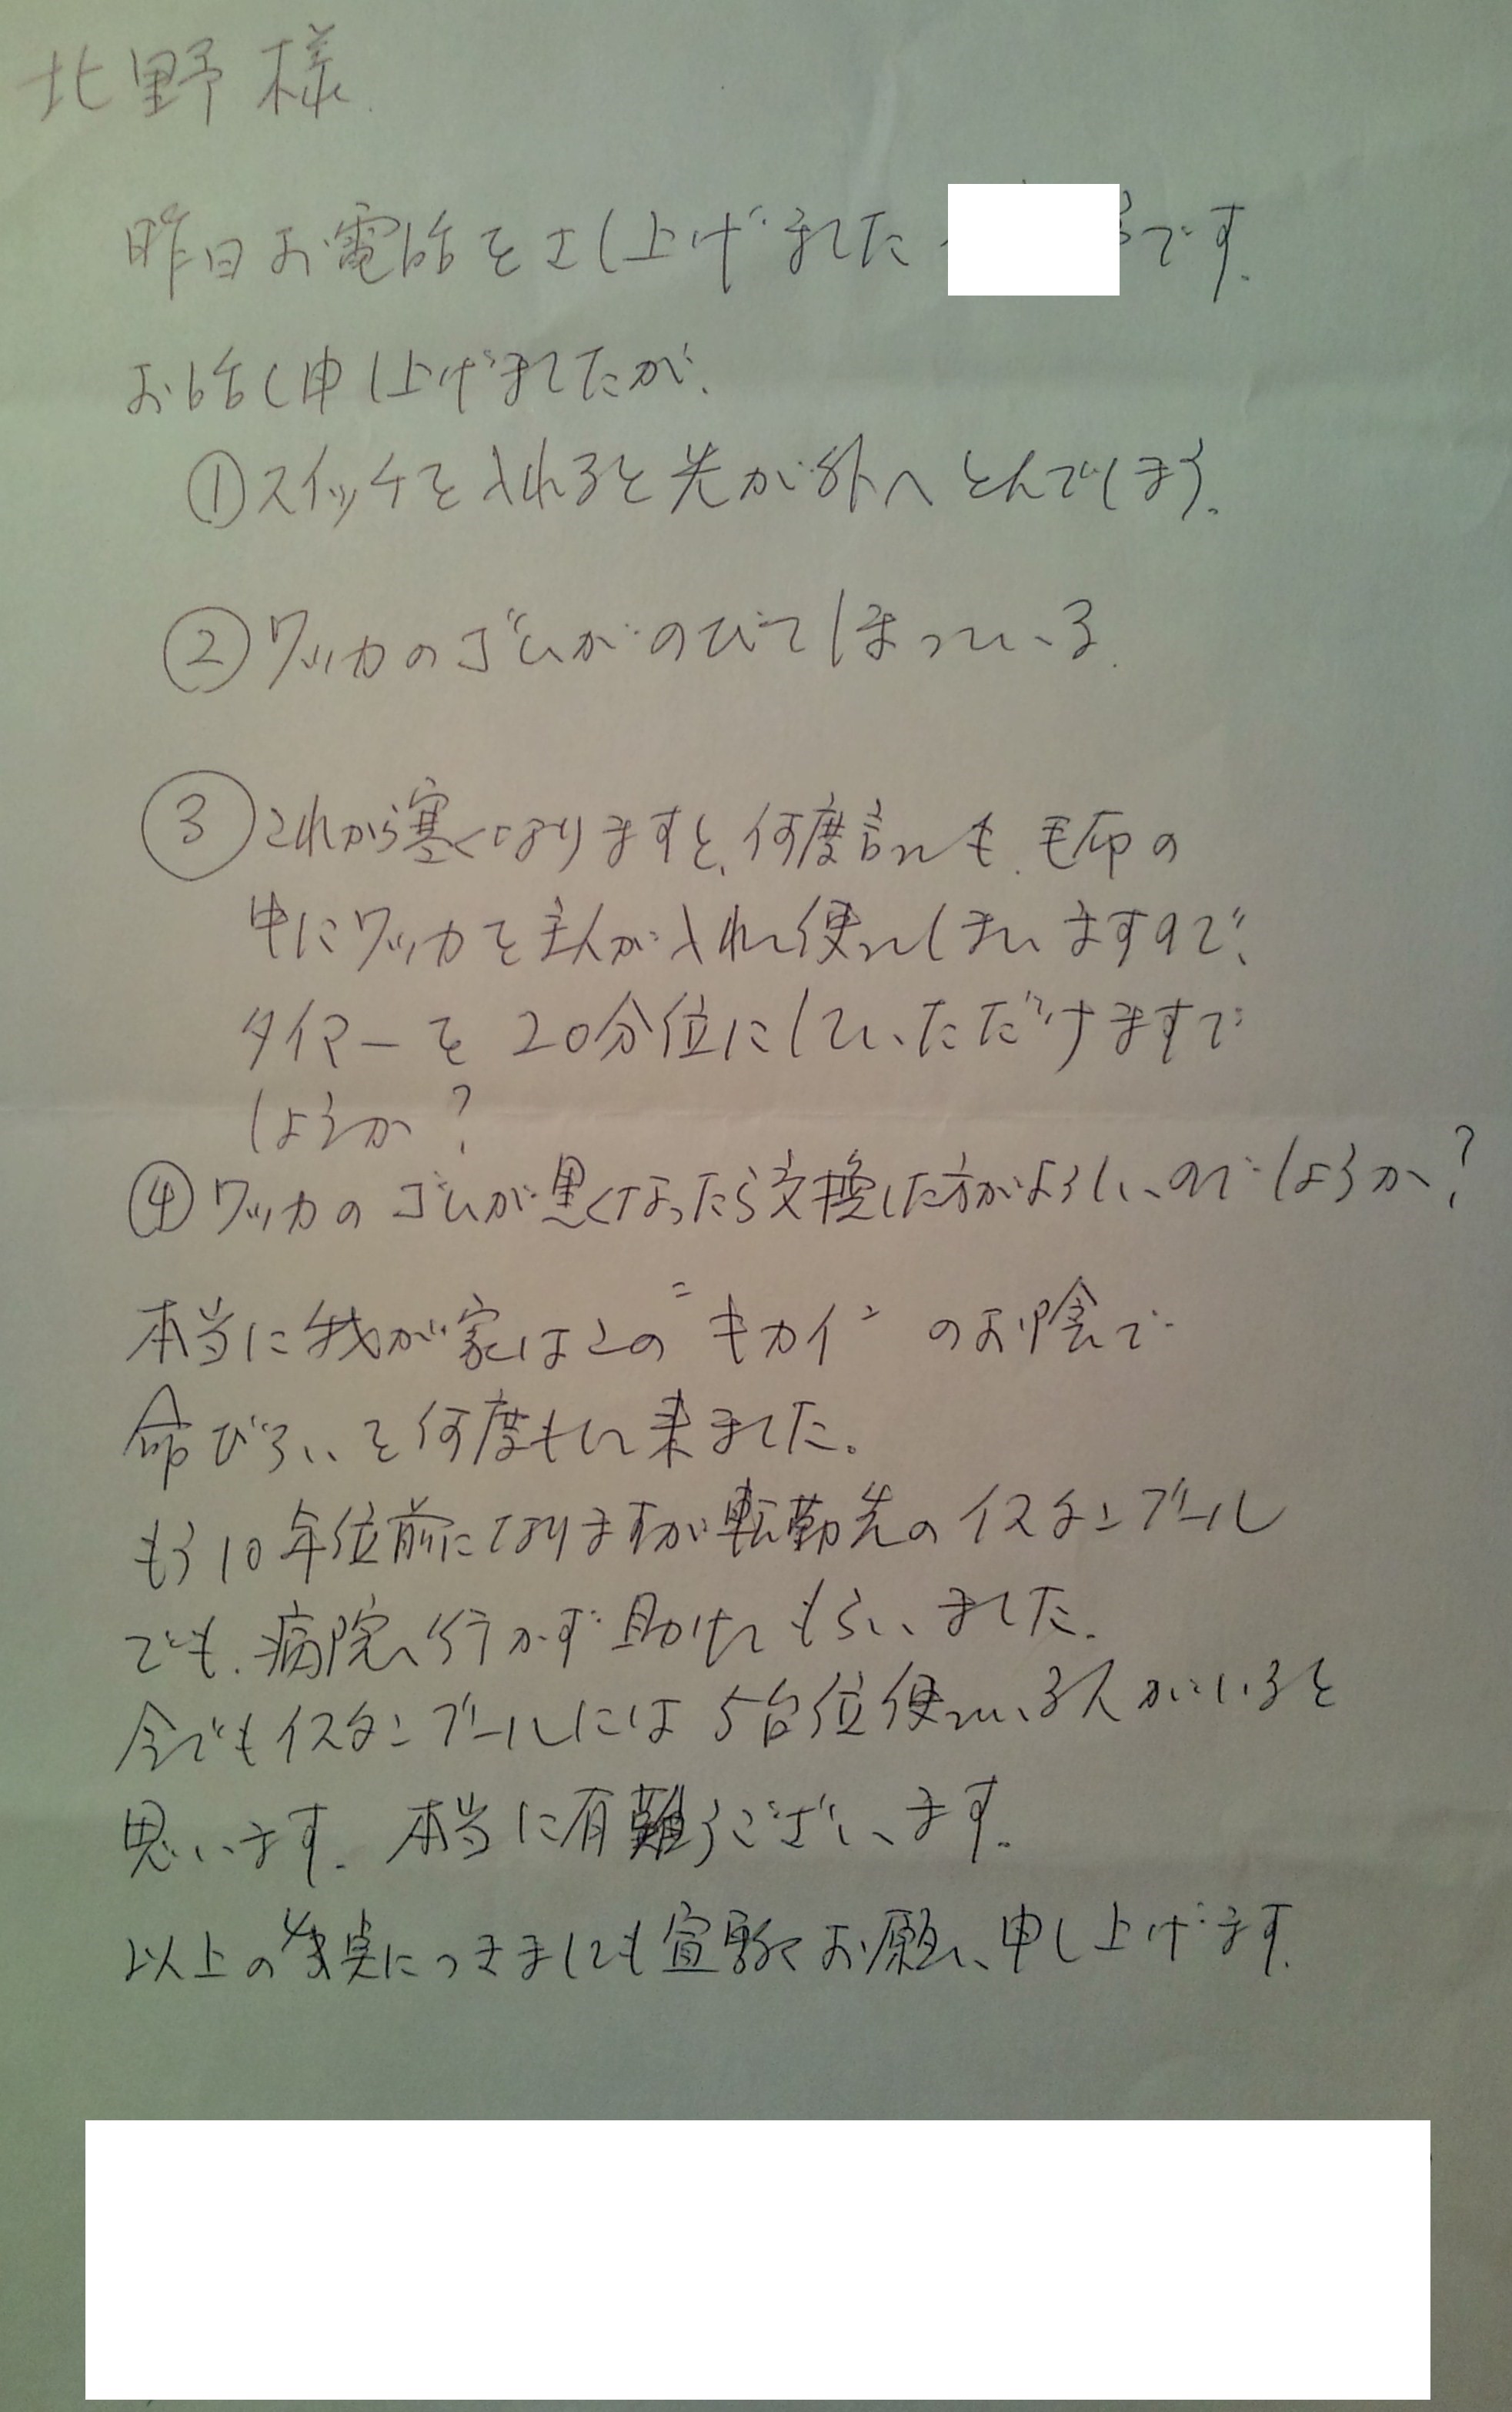 北野様
昨日お電話をさし上げました です。
お話し申し上げましたが、
①スイッチを入れると先が外へとんでしまう。
②ワッカのゴムがのびてしまっている。
③これから寒くなりますと、何度言っても、毛布の
中にワッカを主人が入れて使ってしまいますので、
タイマーを20分位にしていただけますで
しょうか?
④ワッカのゴムが黒くなったら交換した方がよろしいのでしょうか?
本当に我が家はこの"キカイ"のお陰で
命びろいを何度もして来ました。
もう10年位前になりますが転勤先のイスタンブール
でも、病院へ行かず助けてもらいました。
今でもイスタンブールには5台位使っている人がいると
思います。本当に有難うございます。
以上の につきましても宜敷くお願い申し上げます。